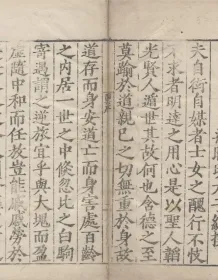 夫自衒自媒者士女之醜行不忮
不求者明達之用心是以聖人韜
光賢人遁世其故何也含德之至
莫踰於道親已之切無重於身故
道存而身安道亡而身害處百齡
之内居一世之中倏忽比之白駒
寄遇謂之逆旅宜乎與大塊而盈
虛隨中和而任放豈能戚戚勞於